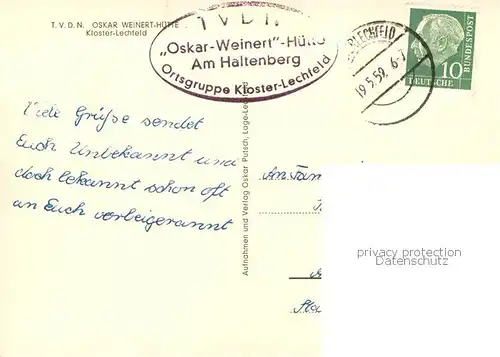 T. V. D. N. OSKAR WEINERT-HÜTTE
Kloster-Lechfeld
T V D N
„Oskar-Weinert"-Hütte
Am Haltenberg
Ortsgruppe Kloster-Lechfeld
LECHFELD
19.5.59. 6-7
DEUTSCHE
BUNDESPOST
10
Viele Grüße sendet
Euch Unbekannt und
doch bekannt schon oft
an Euch vorbeigerannt
Aufnahmen und Verlag Oskar Putsch, Lage-Lechfeld
An Fam
privacy protection
Datenschutz